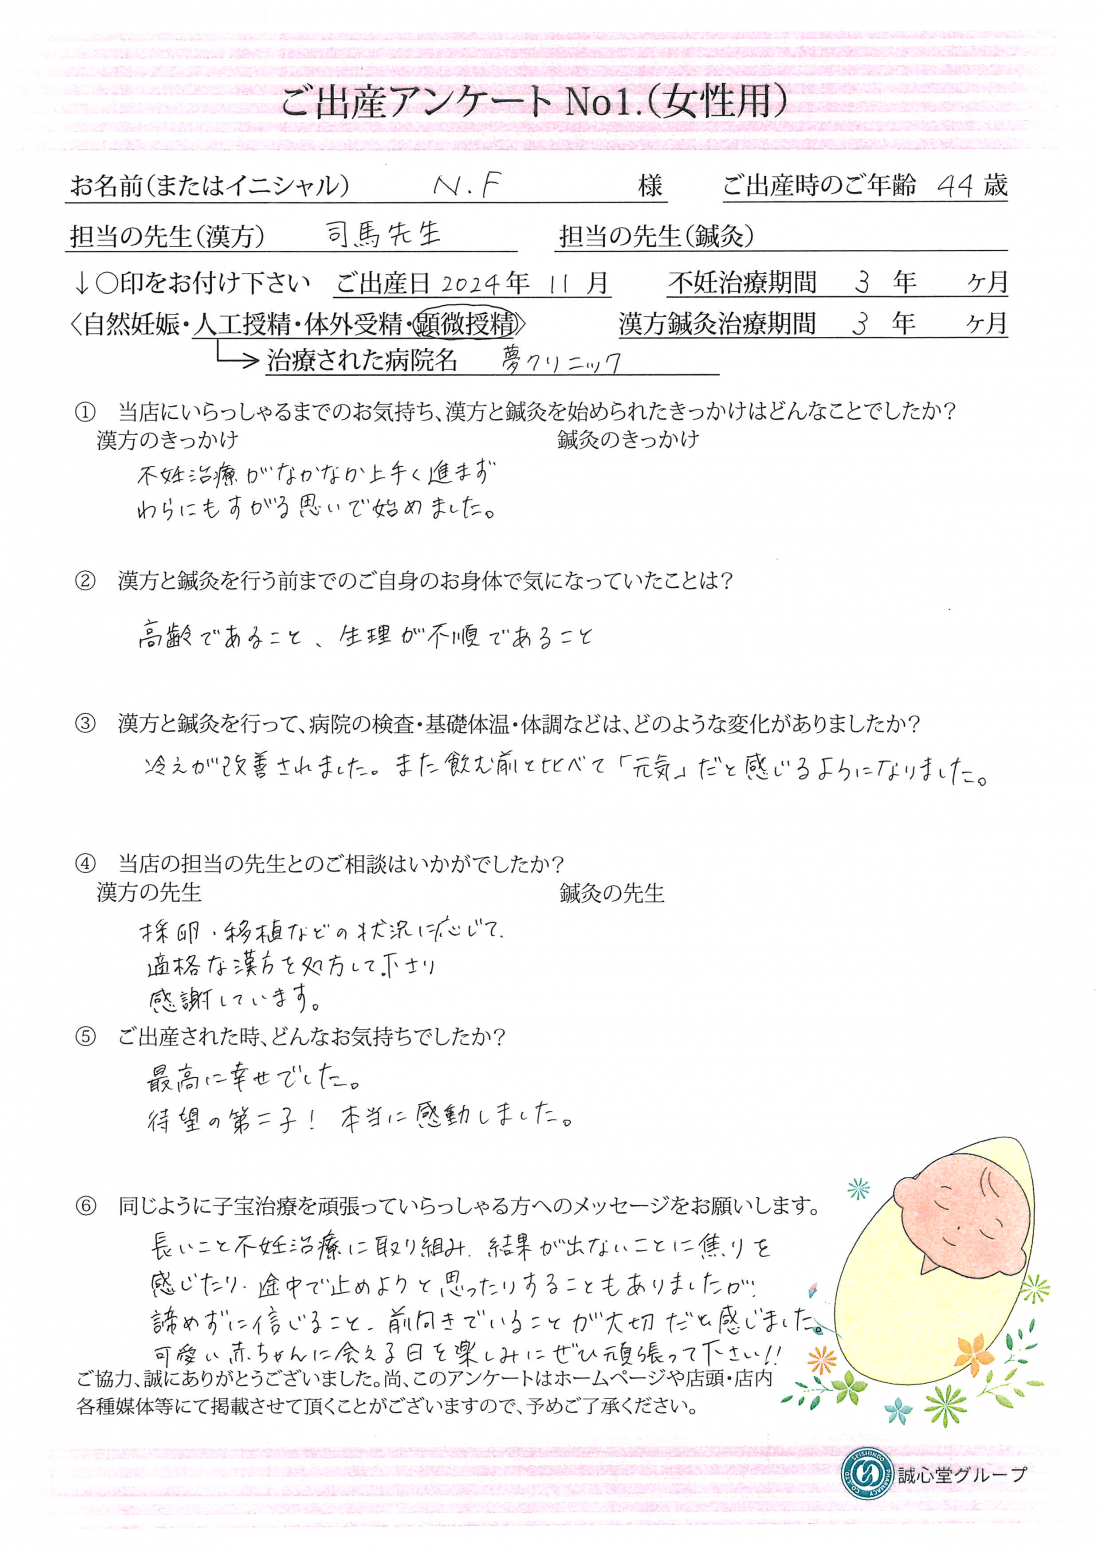 ご出産アンケートNo1.(女性用)
お名前(またはイニシャル) N.F 様 ご出産時のご年齢 44 歳
担当の先生(漢方) 司馬先生 担当の先生(鍼灸)
↓○印をお付け下さい ご出産日 2024年 11 月 不妊治療期間 3 年 ヶ月
〈自然妊娠・人工授精・体外受精・顕微授精〉 漢方鍼灸治療期間 3 年 ヶ月
治療された病院名 夢クリニック
① 当店にいらっしゃるまでのお気持ち、漢方と鍼灸を始められたきっかけはどんなことでしたか?
漢方のきっかけ 鍼灸のきっかけ
不妊治療がなかなか上手く進まず
わらにもすがる思いで始めました。
② 漢方と鍼灸を行う前までのご自身のお身体で気になっていたことは?
高齢であること、生理が不順であること
③ 漢方と鍼灸を行って、病院の検査・基礎体温・体調などは、どのような変化がありましたか?
冷えが改善されました。また飲む前と比べて「元気」だと感じるようになりました。
④ 当店の担当の先生とのご相談はいかがでしたか?
漢方の先生 鍼灸の先生
採卵・移植などの状況に応じて、
適格な漢方を処方して下さり
感謝しています。
⑤ ご出産された時、どんなお気持ちでしたか?
最高に幸せでした。
待望の第二子! 本当に感動しました。
⑥ 同じように子宝治療を頑張っていらっしゃる方へのメッセージをお願いします。
長いこと不妊治療に取り組み、結果が出ないことに焦りを
感じたり、途中で止めようと思ったりすることもありましたが、
諦めずに信じること、前向きでいることが大切だと感じました。
可愛い赤ちゃんに会える日を楽しみにぜひ頑張って下さい!!
ご協力、誠にありがとうございました。尚、このアンケートはホームページや店頭・店内
各種媒体等にて掲載させて頂くことがございますので、予めご了承ください。
誠心堂グループ